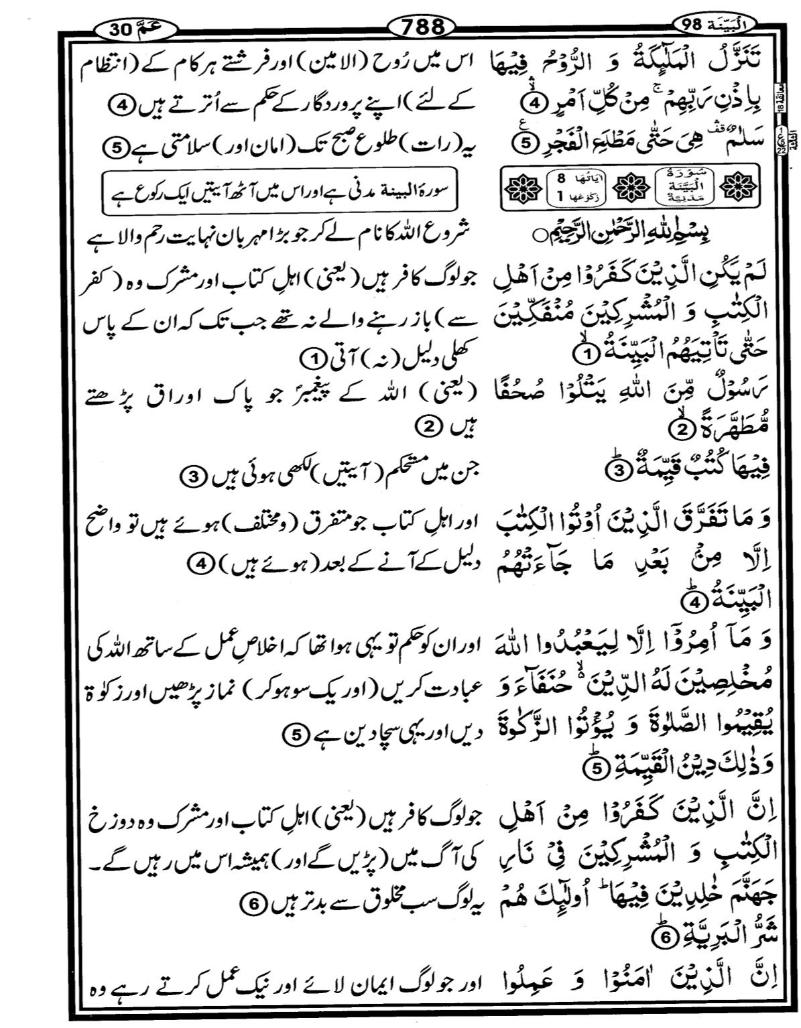 البينة 98
788
عمّ 30
تَنَزَّلُ الْمَلٰٓئِكَةُ وَ الرُّوْحُ فِيْهَا
بِاِذْنِ رَبِّهِمْ ۚ مِنْ كُلِّ اَمْرٍ ۙ 4
سَلٰمٌ ۛ قف هِيَ حَتّٰى مَطْلَعِ الْفَجْرِ 5 ع
اس میں رُوح (الامین) اور فرشتے ہر کام کے (انتظام
کے لئے) اپنے پروردگار کے حکم سے اُترتے ہیں 4
یہ (رات) طلوع صبح تک (امان اور) سلامتی ہے 5
سُوْرَةُ
الْبَيِّنَة
مَدَنِيَّة
اٰيَاتُهَا 8
رُكُوْعُهَا 1
سورۃ البینۃ مدنی ہے اور اس میں آٹھ آیتیں ایک رکوع ہے
بِسْمِ اللّٰهِ الرَّحْمٰنِ الرَّحِيْمِ
شروع اللہ کا نام لے کر جو بڑا مہربان نہایت رحم والا ہے
لَمْ يَكُنِ الَّذِيْنَ كَفَرُوْا مِنْ اَهْلِ
الْكِتٰبِ وَ الْمُشْرِكِيْنَ مُنْفَكِّيْنَ
حَتّٰى تَاْتِيَهُمُ الْبَيِّنَةُ ۙ 1
جو لوگ کافر ہیں (یعنی) اہلِ کتاب اور مشرک وہ (کفر
سے) باز رہنے والے نہ تھے جب تک کہ ان کے پاس
کھلی دلیل (نہ) آتی 1
رَسُوْلٌ مِّنَ اللّٰهِ يَتْلُوْا صُحُفًا
مُّطَهَّرَةً ۙ 2
(یعنی) اللہ کے پیغمبرؐ جو پاک اوراق پڑھتے
ہیں 2
فِيْهَا كُتُبٌ قَيِّمَةٌ ؕ 3
جن میں مستحکم (آیتیں) لکھی ہوئی ہیں 3
وَ مَا تَفَرَّقَ الَّذِيْنَ اُوْتُوا الْكِتٰبَ
اِلَّا مِنْۢ بَعْدِ مَا جَآءَتْهُمُ
الْبَيِّنَةُ ؕ 4
اور اہلِ کتاب جو متفرق (و مختلف) ہوئے ہیں تو واضح
دلیل کے آنے کے بعد (ہوئے ہیں) 4
وَ مَاۤ اُمِرُوْۤا اِلَّا لِيَعْبُدُوا اللّٰهَ
مُخْلِصِيْنَ لَهُ الدِّيْنَ ۙ حُنَفَآءَ وَ
يُقِيْمُوا الصَّلٰوةَ وَ يُؤْتُوا الزَّكٰوةَ
وَ ذٰلِكَ دِيْنُ الْقَيِّمَةِ ؕ 5
اور ان کو حکم تو یہی ہوا تھا کہ اخلاصِ عمل کے ساتھ اللہ کی
عبادت کریں (اور یک سو ہو کر) نماز پڑھیں اور زکوٰۃ
دیں اور یہی سچا دین ہے 5
اِنَّ الَّذِيْنَ كَفَرُوْا مِنْ اَهْلِ
الْكِتٰبِ وَ الْمُشْرِكِيْنَ فِيْ نَارِ
جَهَنَّمَ خٰلِدِيْنَ فِيْهَا ؕ اُولٰٓئِكَ هُمْ
شَرُّ الْبَرِيَّةِ ؕ 6
جو لوگ کافر ہیں (یعنی) اہلِ کتاب اور مشرک وہ دوزخ
کی آگ میں (پڑیں گے اور) ہمیشہ اس میں رہیں گے۔
یہ لوگ سب مخلوق سے بدتر ہیں 6
اِنَّ الَّذِيْنَ اٰمَنُوْا وَ عَمِلُوا
اور جو لوگ ایمان لائے اور نیک عمل کرتے رہے وہ